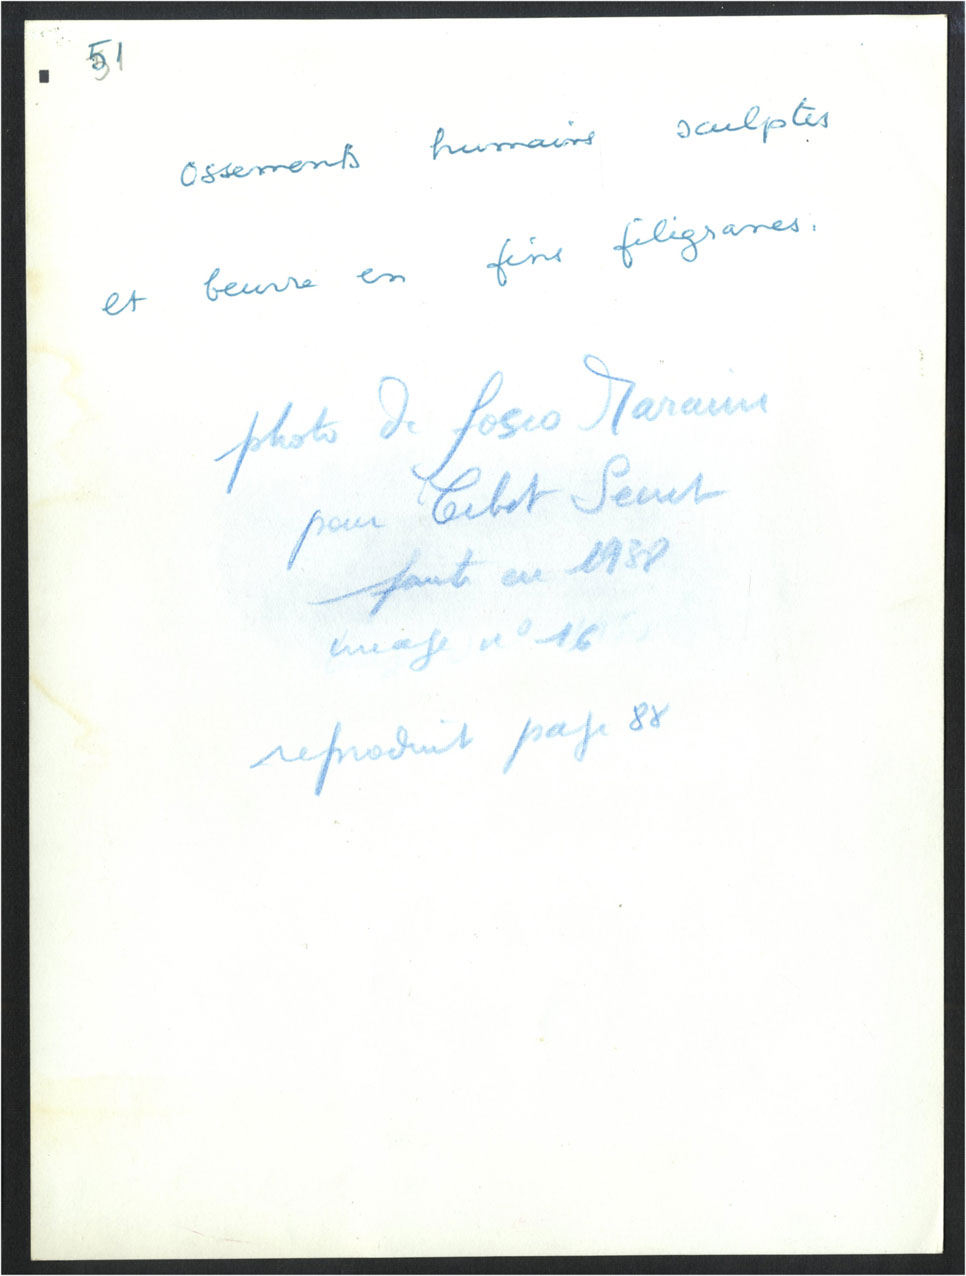 51
Ossements humains sculptes
et beurre en fins filigranes.
photo de Fosco Maraini
pour Tibet Secret
faite en 1938
image n° 16
reproduit page 88